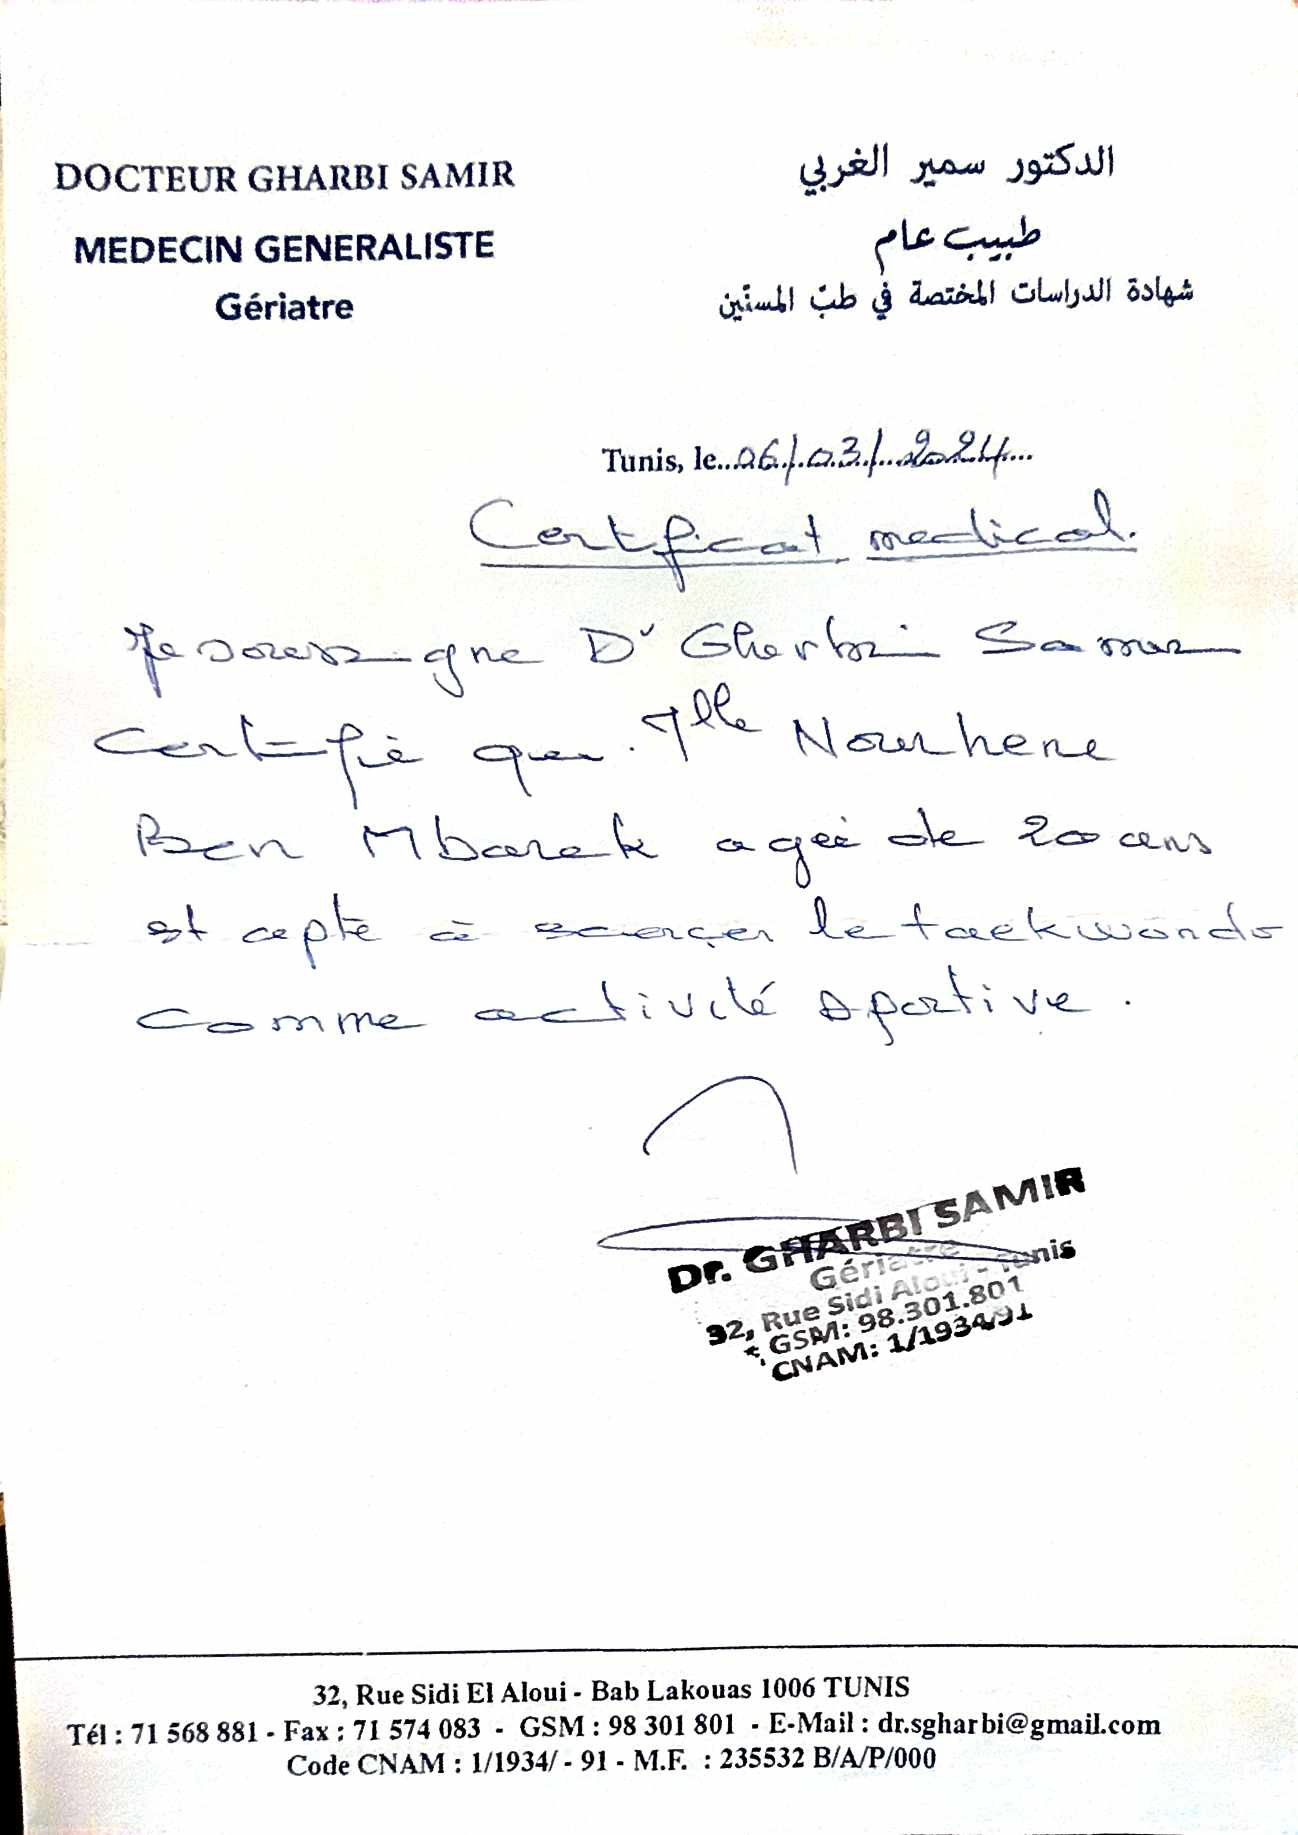 DOCTEUR GHARBI SAMIR
MEDECIN GENERALISTE
Gériatre
الدكتور سمير الغربي
طبيب عام
شهادة الدراسات المختصة في طبّ المسنّين
Tunis, le..06./.03./...2024...
Certificat medical.
Je soussigné Dr Gharbi Samir
Certifie que Mlle Nourhene
Ben Mbarek agée de 20 ans
est apte à exercer le taekwondo
comme activité sportive.
Dr. GHARBI SAMIR
Gériatre
32, Rue Sidi Aloui - Tunis
GSM: 98.301.801
CNAM: 1/1934/91
32, Rue Sidi El Aloui - Bab Lakouas 1006 TUNIS
Tél : 71 568 881 - Fax : 71 574 083 - GSM : 98 301 801 - E-Mail : dr.sgharbi@gmail.com
Code CNAM : 1/1934/ - 91 - M.F. : 235532 B/A/P/000